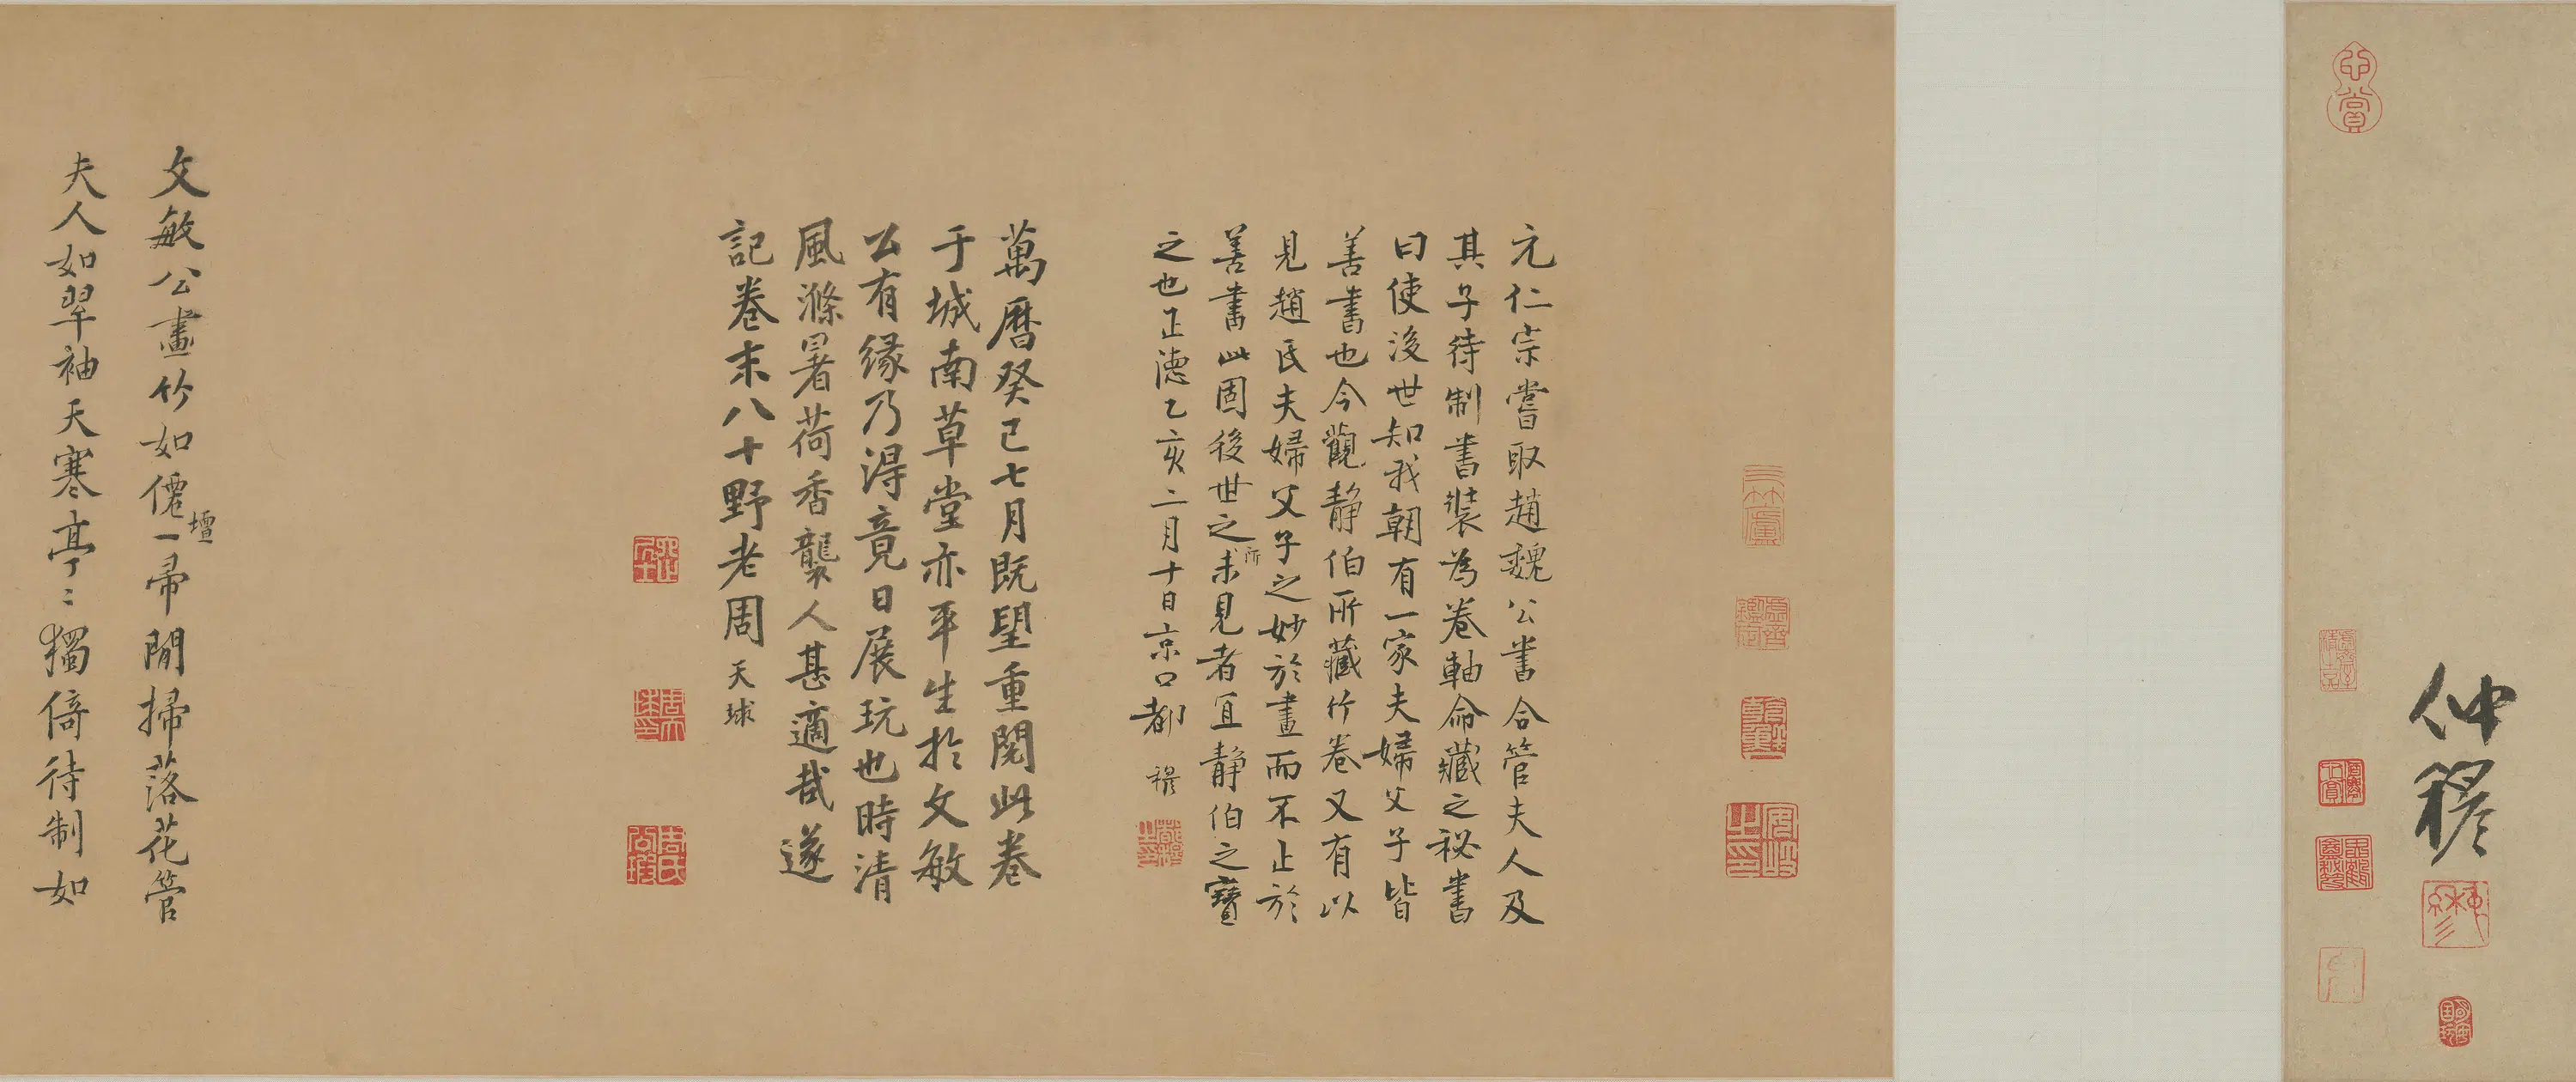 仲穆
元仁宗嘗取趙魏公書合管夫人及
其子待制書裝為卷軸命藏之祕書
曰使後世知我朝有一家夫婦父子皆
善書也今觀靜伯所藏竹卷又有以
見趙氏夫婦父子之妙於畫而不止於
善書此固後世之所未見者宜靜伯之寶
之也正德乙亥二月十日京口都穆
萬曆癸巳七月既望重閱此卷
于城南草堂亦平生於文敏
公有緣乃得竟日展玩也時清
風滌暑荷香襲人甚適哉遂
記卷末八十野老周天球
文敏公畫竹如僊壇一帚閒掃落花管
夫人如翠袖天寒亭〻獨倚待制如